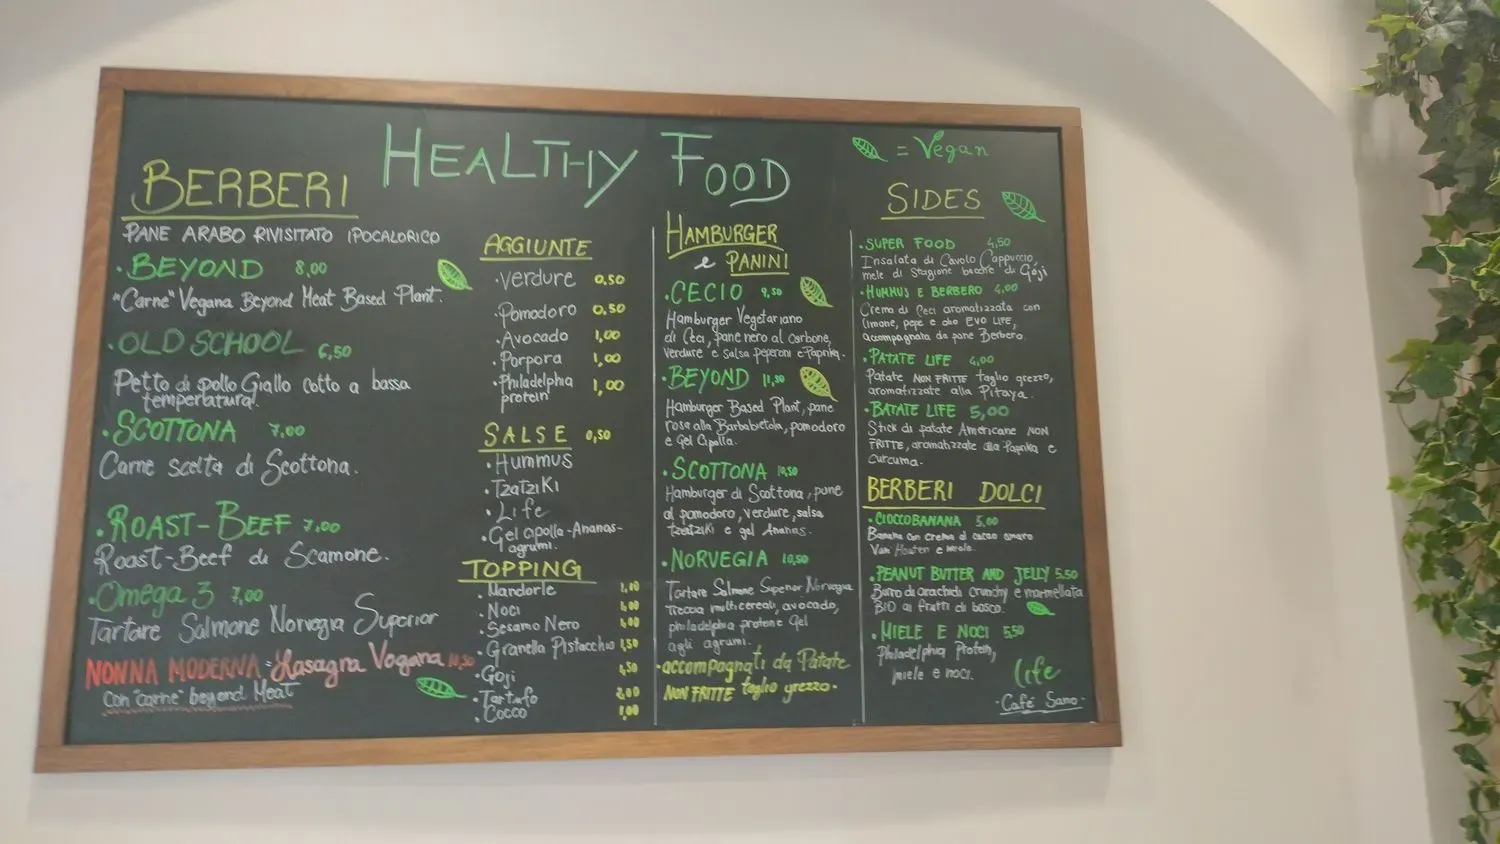 HEALTHY FOOD
= Vegan
BERBERI
PANE ARABO RIVISITATO IPOCALORICO
· BEYOND 8,00
"Carne" Vegana Beyond Meat Based Plant.
· OLD SCHOOL 6,50
Petto di pollo Giallo cotto a bassa
temperatura.
· SCOTTONA 7,00
Carne scelta di Scottona.
· ROAST-BEEF 7,00
Roast-Beef di Scamone.
· Omega 3 7,00
Tartare Salmone Norvegia Superior
NONNA MODERNA = Lasagna Vegana 10,50
con "carne" beyond Meat
AGGIUNTE
· Verdure 0.50
· Pomodoro 0.50
· Avocado 1,00
· Porpora 1,00
· Philadelphia 1,00
protein
SALSE 0,50
· HUMMUS
· TZATZIKI
· Life
· Gel cipolla-Ananas-
agrumi.
TOPPING
· Mandorle
· Noci 1,00
· Sesamo Nero 1,00
· Granella Pistacchio 1,50
· Goji 1,50
· Tartufo 2,00
· Cocco 1,00
HAMBURGER
e PANINI
· CECIO 9,50
Hamburger Vegetariano
di Ceci, pane nero al carbone,
verdure e salsa peperoni e Paprika.
· BEYOND 11,50
Hamburger Based Plant, pane
rosa alla Barbabietola, pomodoro
e Gel Cipolla.
· SCOTTONA 10,50
Hamburger di Scottona, pane
al pomodoro, verdure, salsa
tzatziki e gel Ananas.
· NORVEGIA 10,50
Tartare Salmone Superior Norvegia
treccia multicereali, avocado,
philadelphia protein e Gel
agli agrumi.
· accompagnati da Patate
NON FRITTE taglio grezzo ·
SIDES
· SUPER FOOD 4,50
Insalata di Cavolo Cappuccio,
mele di Stagione bacche di Goji
· HUMMUS E BERBERO 4,00
Crema di Ceci aromatizzata con
limone, pepe e olio EVO LIFE,
accompagnata da pane Berbero.
· PATATE LIFE 4,00
Patate NON FRITTE taglio grezzo,
aromatizzate alla Pitaya.
· BATATE LIFE 5,00
Stick di patate Americane NON
FRITTE, aromatizzate alla Paprika e
curcuma.
BERBERI DOLCI
· CIOCCOBANANA 5,00
Banana con crema di cacao amaro
Van Houten e miele.
· PEANUT BUTTER AND JELLY 5,50
Burro di arachidi crunchy e marmellata
BIO ai frutti di bosco.
· MIELE E NOCI 5,50
Philadelphia Protein,
miele e noci.
life
· Café Sano ·